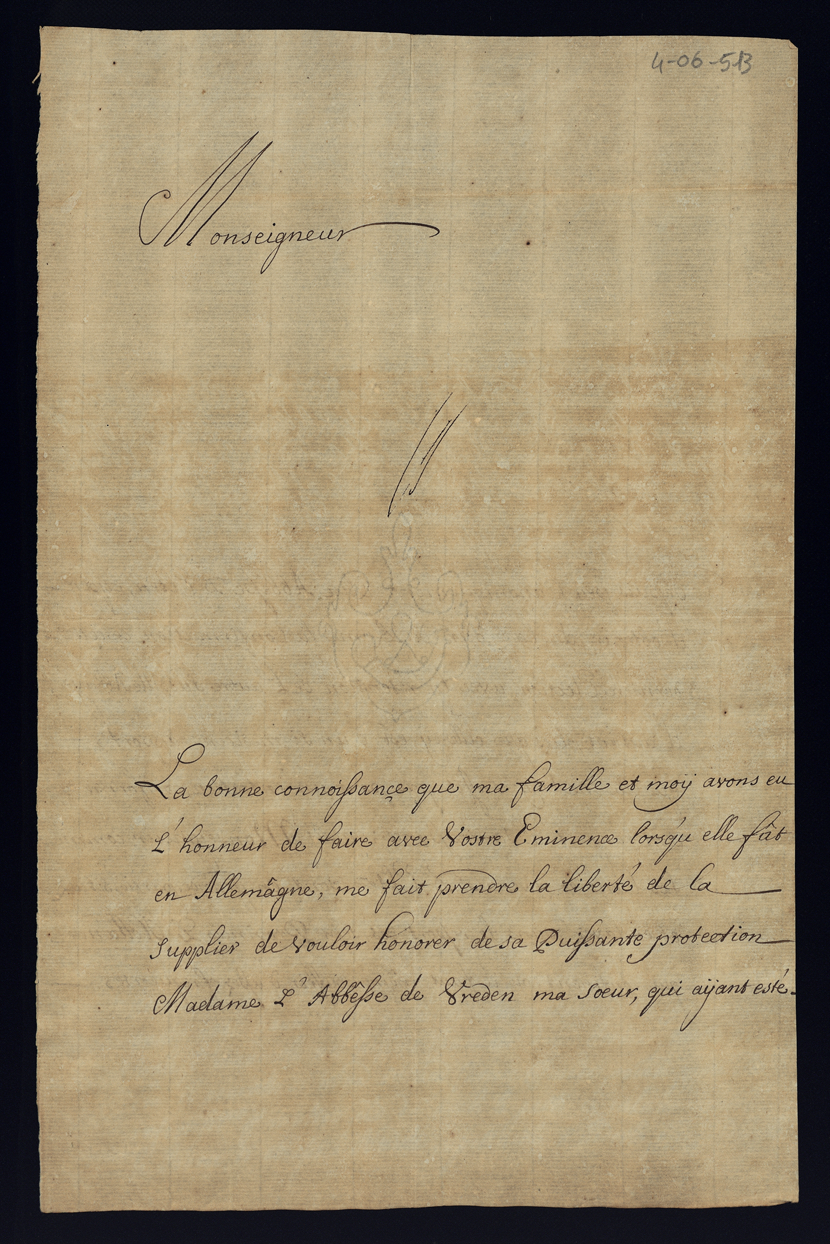 4-06-513
Monseigneur
La bonne connoissançe que ma famille et moÿ avons eu
L'honneur de faire avec Vostre Eminence lorsqu'elle fût
en Allemâgne, me fait prendre la liberté de la
supplier de vouloir honorer de sa Puissante protection
Madame L'Abbêsse de Vreden ma soeur, qui aÿant esté